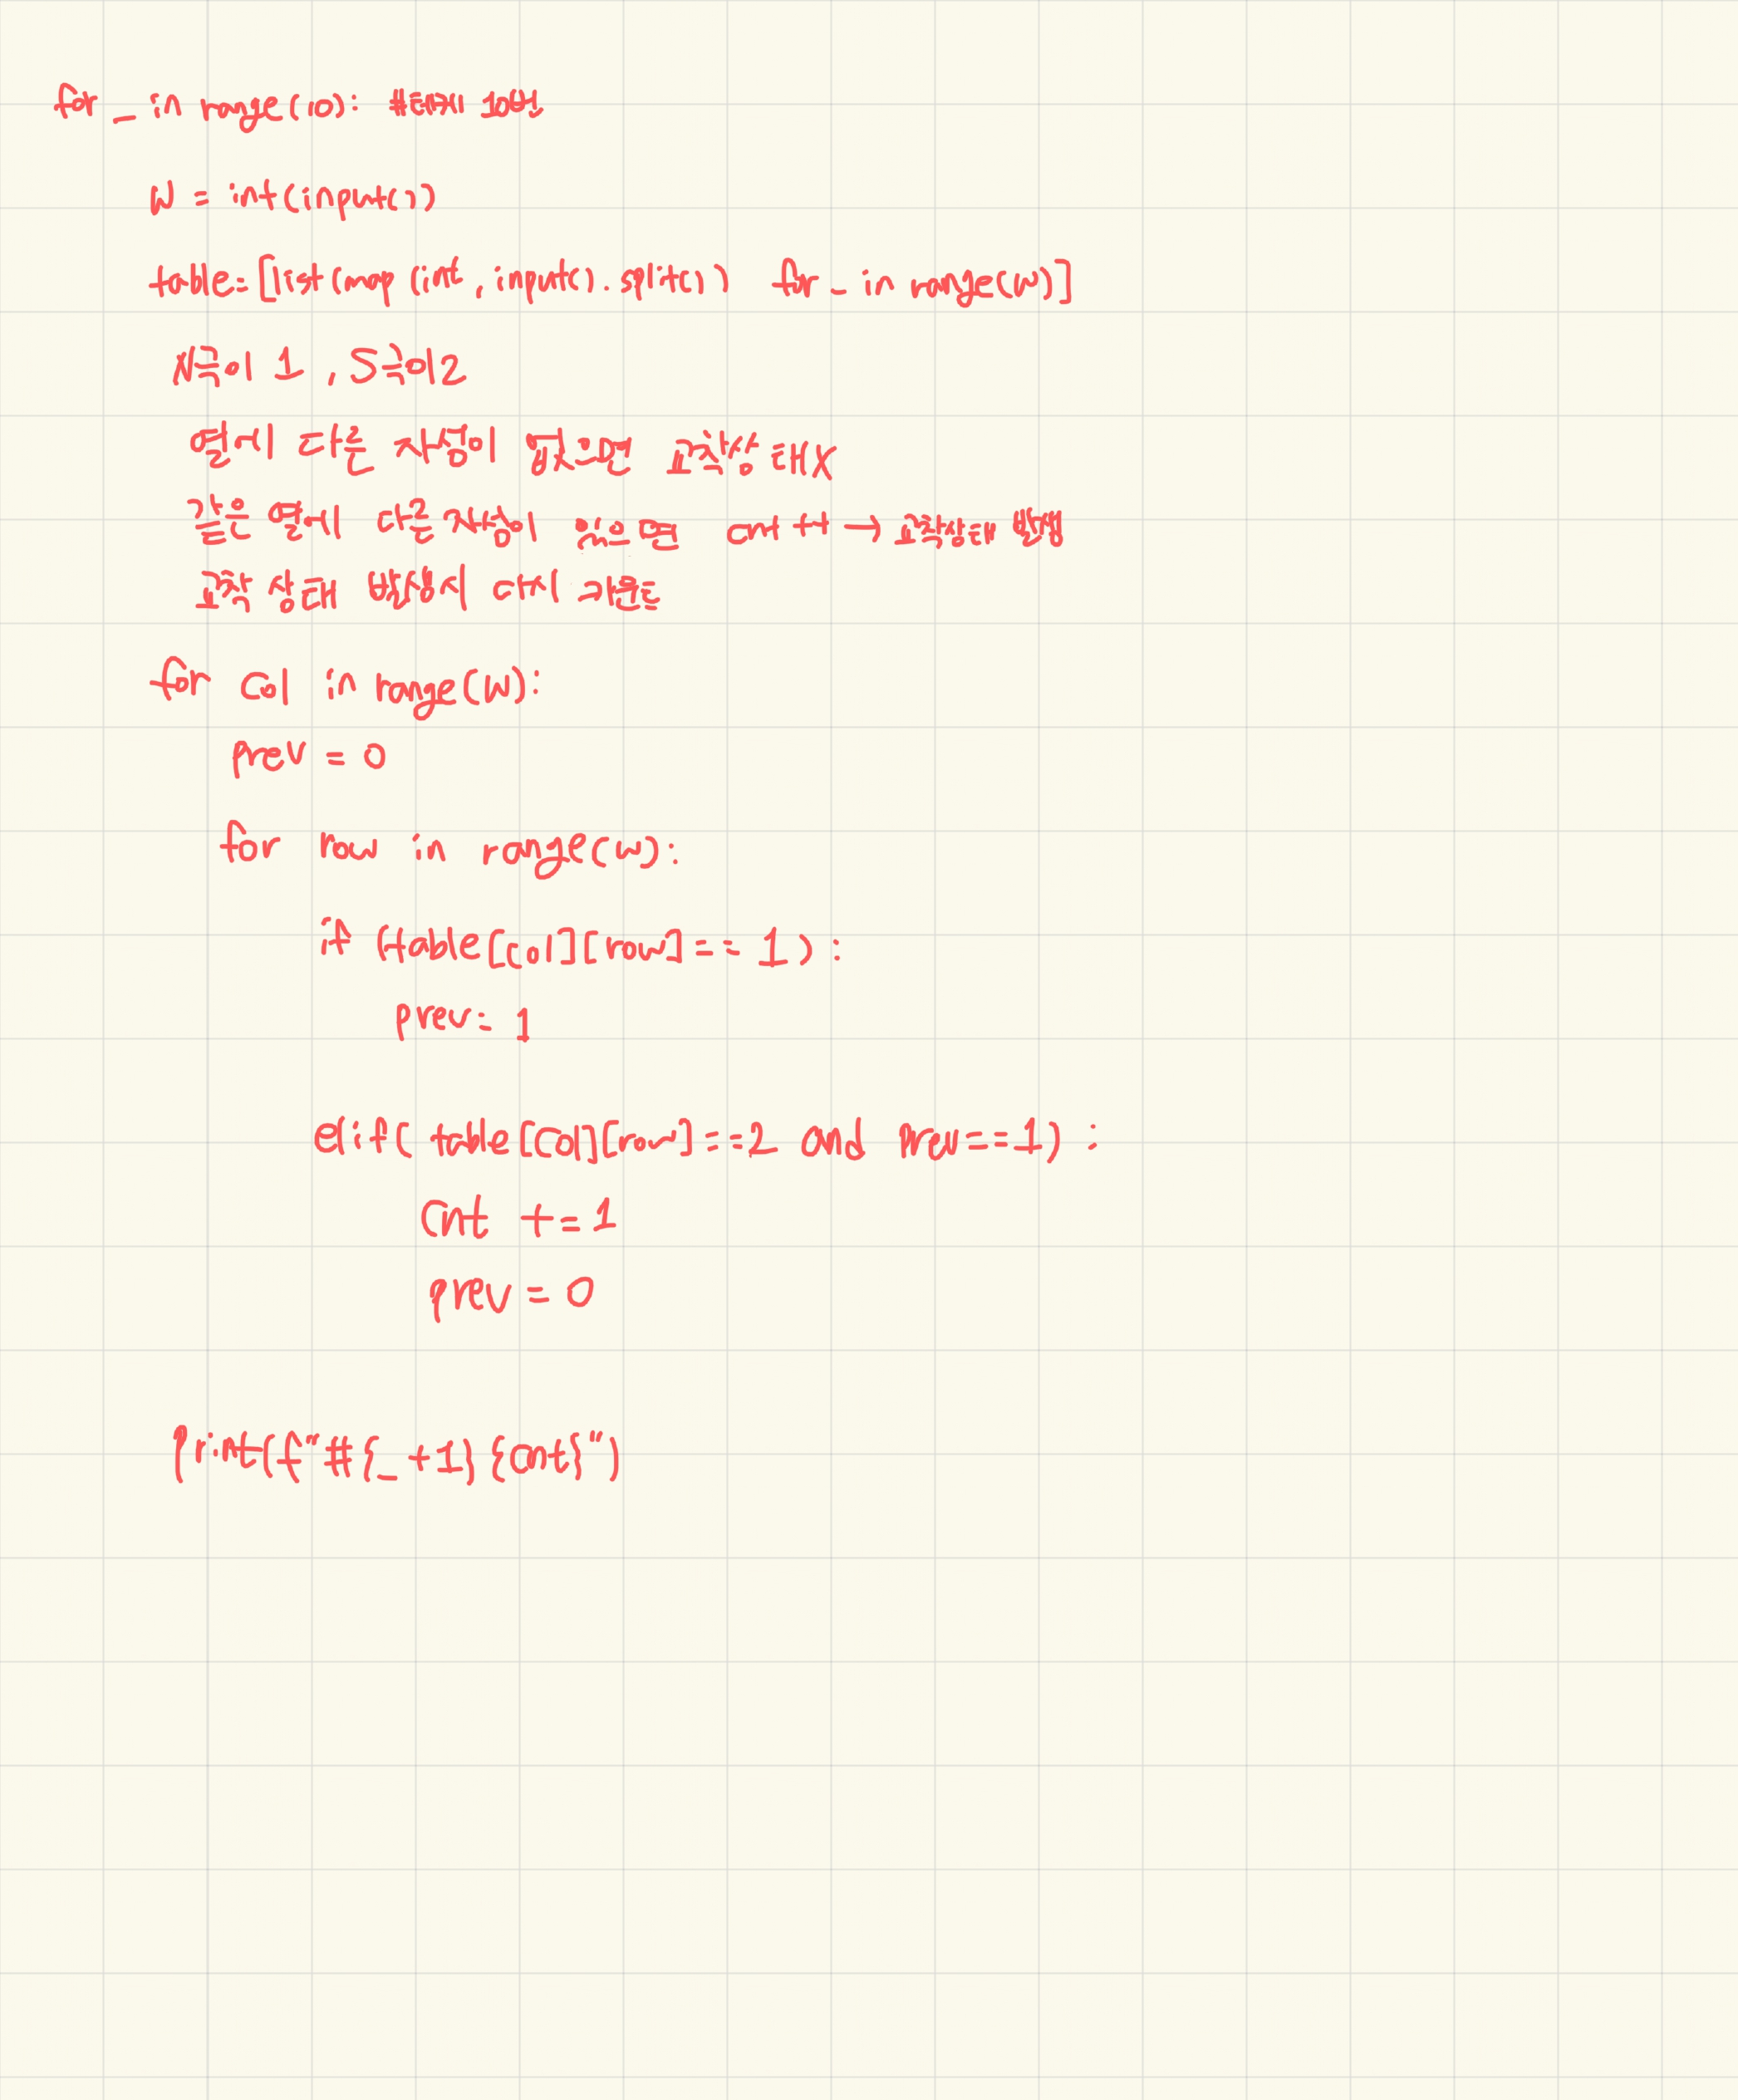 for _ in range(10): #테케 10번
W = int(input())
table=[list(map(int, input().split()) for _ in range(W)]
N극이 1, S극이 2
열에 다른 자성이 없으면 교착상태X
같은 열에 다른자성이 있으면 cnt ++ → 교착상태 발생
교착 상태 발생시 cnt 카운트
for col in range(W):
prev = 0
for row in range(W):
if (table[col][row]== 1):
prev= 1
elif( table[col][row]==2 and prev==1) :
cnt +=1
prev = 0
print(f"#{_+1} {cnt}")